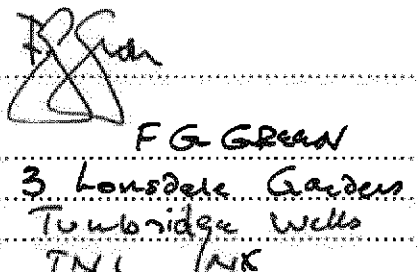 F G GREEN
3 Lonsdale Gardens
Tunbridge Wells
TN1 1NX